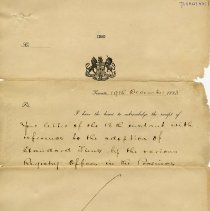 No
Toronto, 17th December 1883
I have the honor to acknowledge the receipt of
your letter of the 12th instant with
reference to the adoption of
Standard Time by the various
Registry Offices in the Province